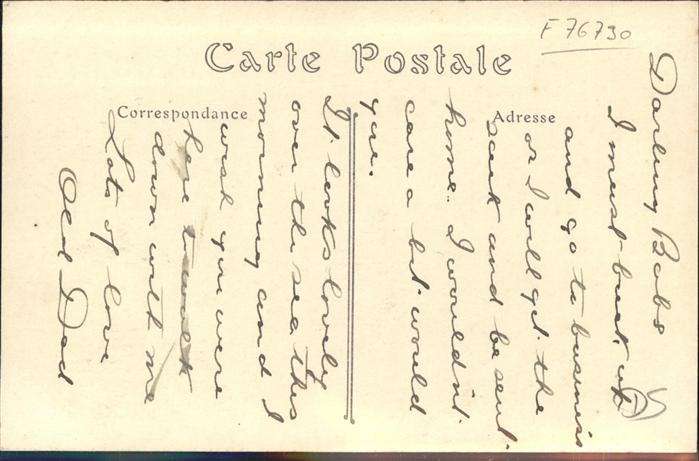 F 76730
Carte Postale
Correspondance
Adresse
Darling Babs
I must buck up
and go to business
or I will get the
sack and be sent
home. I wouldn't
care a bit would
you.
It looks lovely
over the sea this
morning and I
wish you were
here to walk
down with me
Lots of love
Old Dad